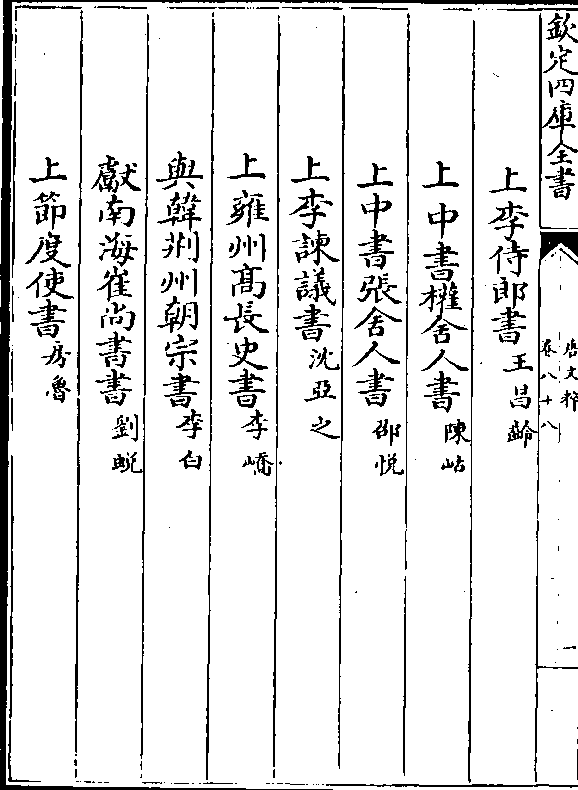 欽定四庫全書
唐文粹
卷八十八
一
上李侍郎書王昌齡
上中書權舍人書陳岵
上中書張舍人書邵悅
上李諫議書沈亞之
上雍州髙長史書李嶠
與韓荆州朝宗書李白
獻南海崔尚書書劉蛻
上節度使書房魯